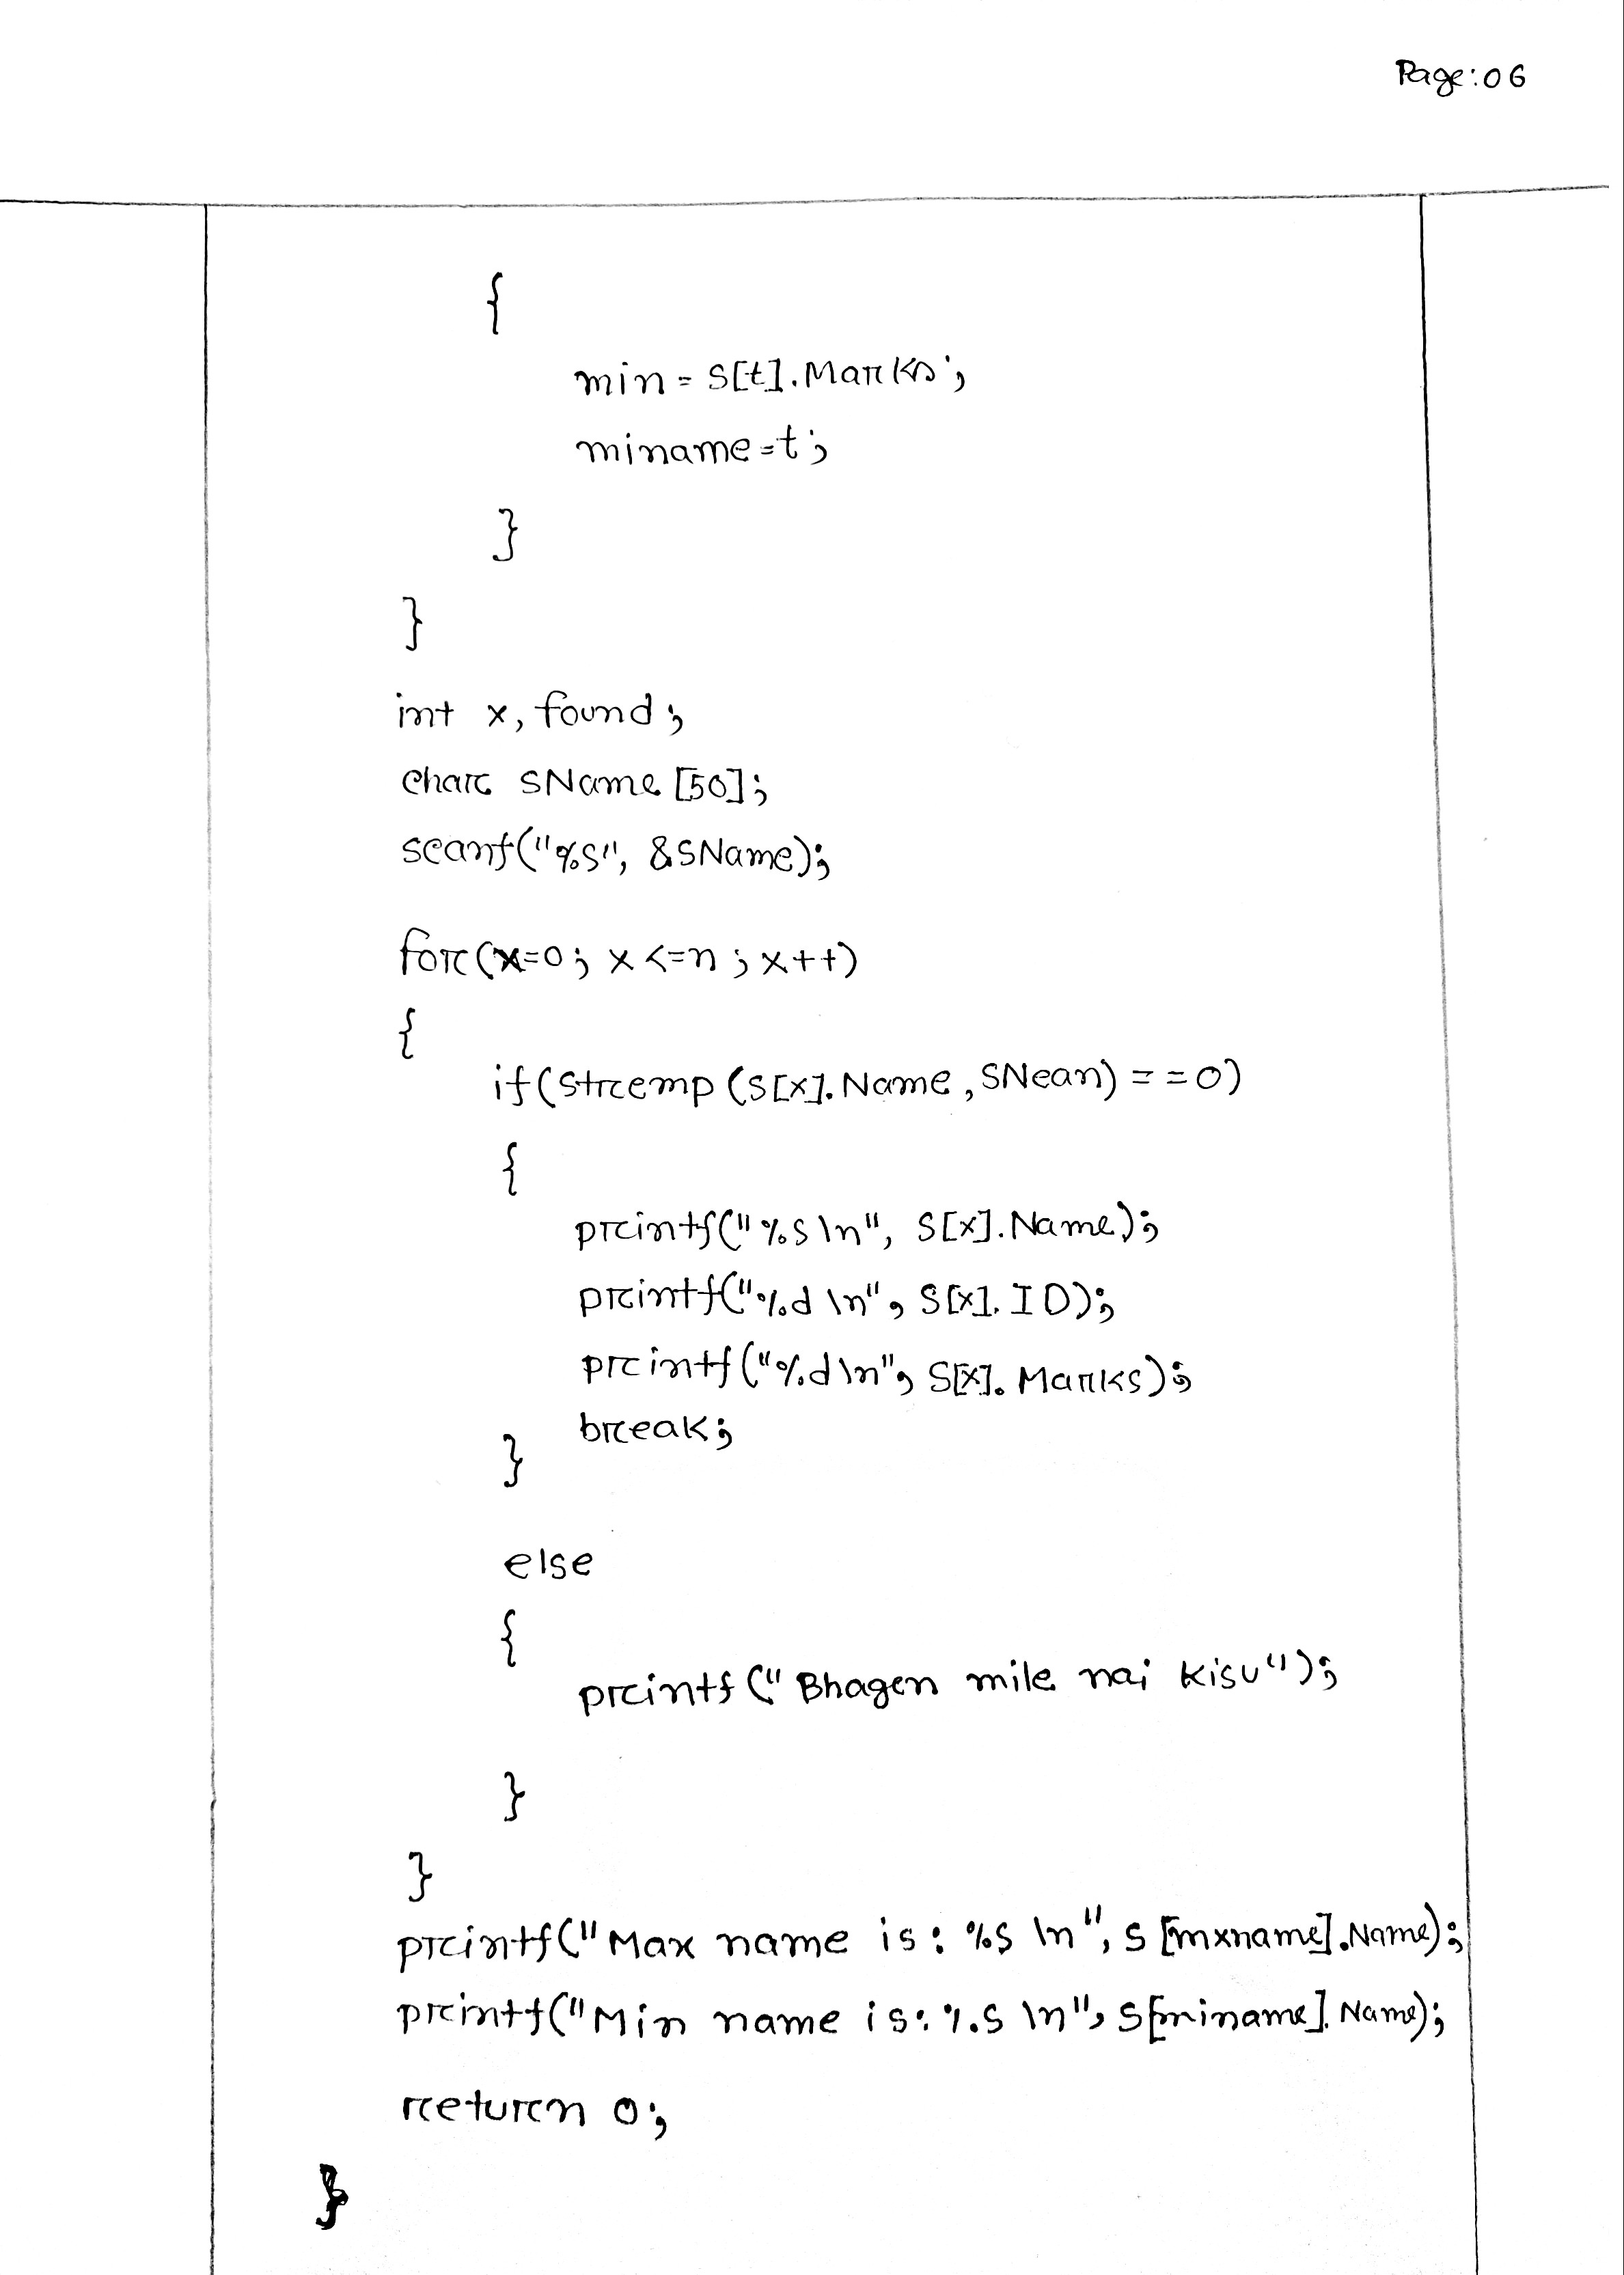 Page:06
{
min = S[t].Marks;
miname=t;
}
}
int x, found;
char SName [50];
scanf("%S", &SName);
for(x=0; x<=n; x++)
{
if(Strcmp (S[x].Name, SNean) ==0)
{
printf("%s\n", S[x].Name);
printf("%d \n", S[x].ID);
printf("%d\n", S[x]. Marks);
break;
}
else
{
printf (" Bhagen mile nai kisu");
}
}
printf("Max name is: %s \n", S [mxname].Name);
printf("Min name is: %.S \n", S[miname].Name);
return 0;
}